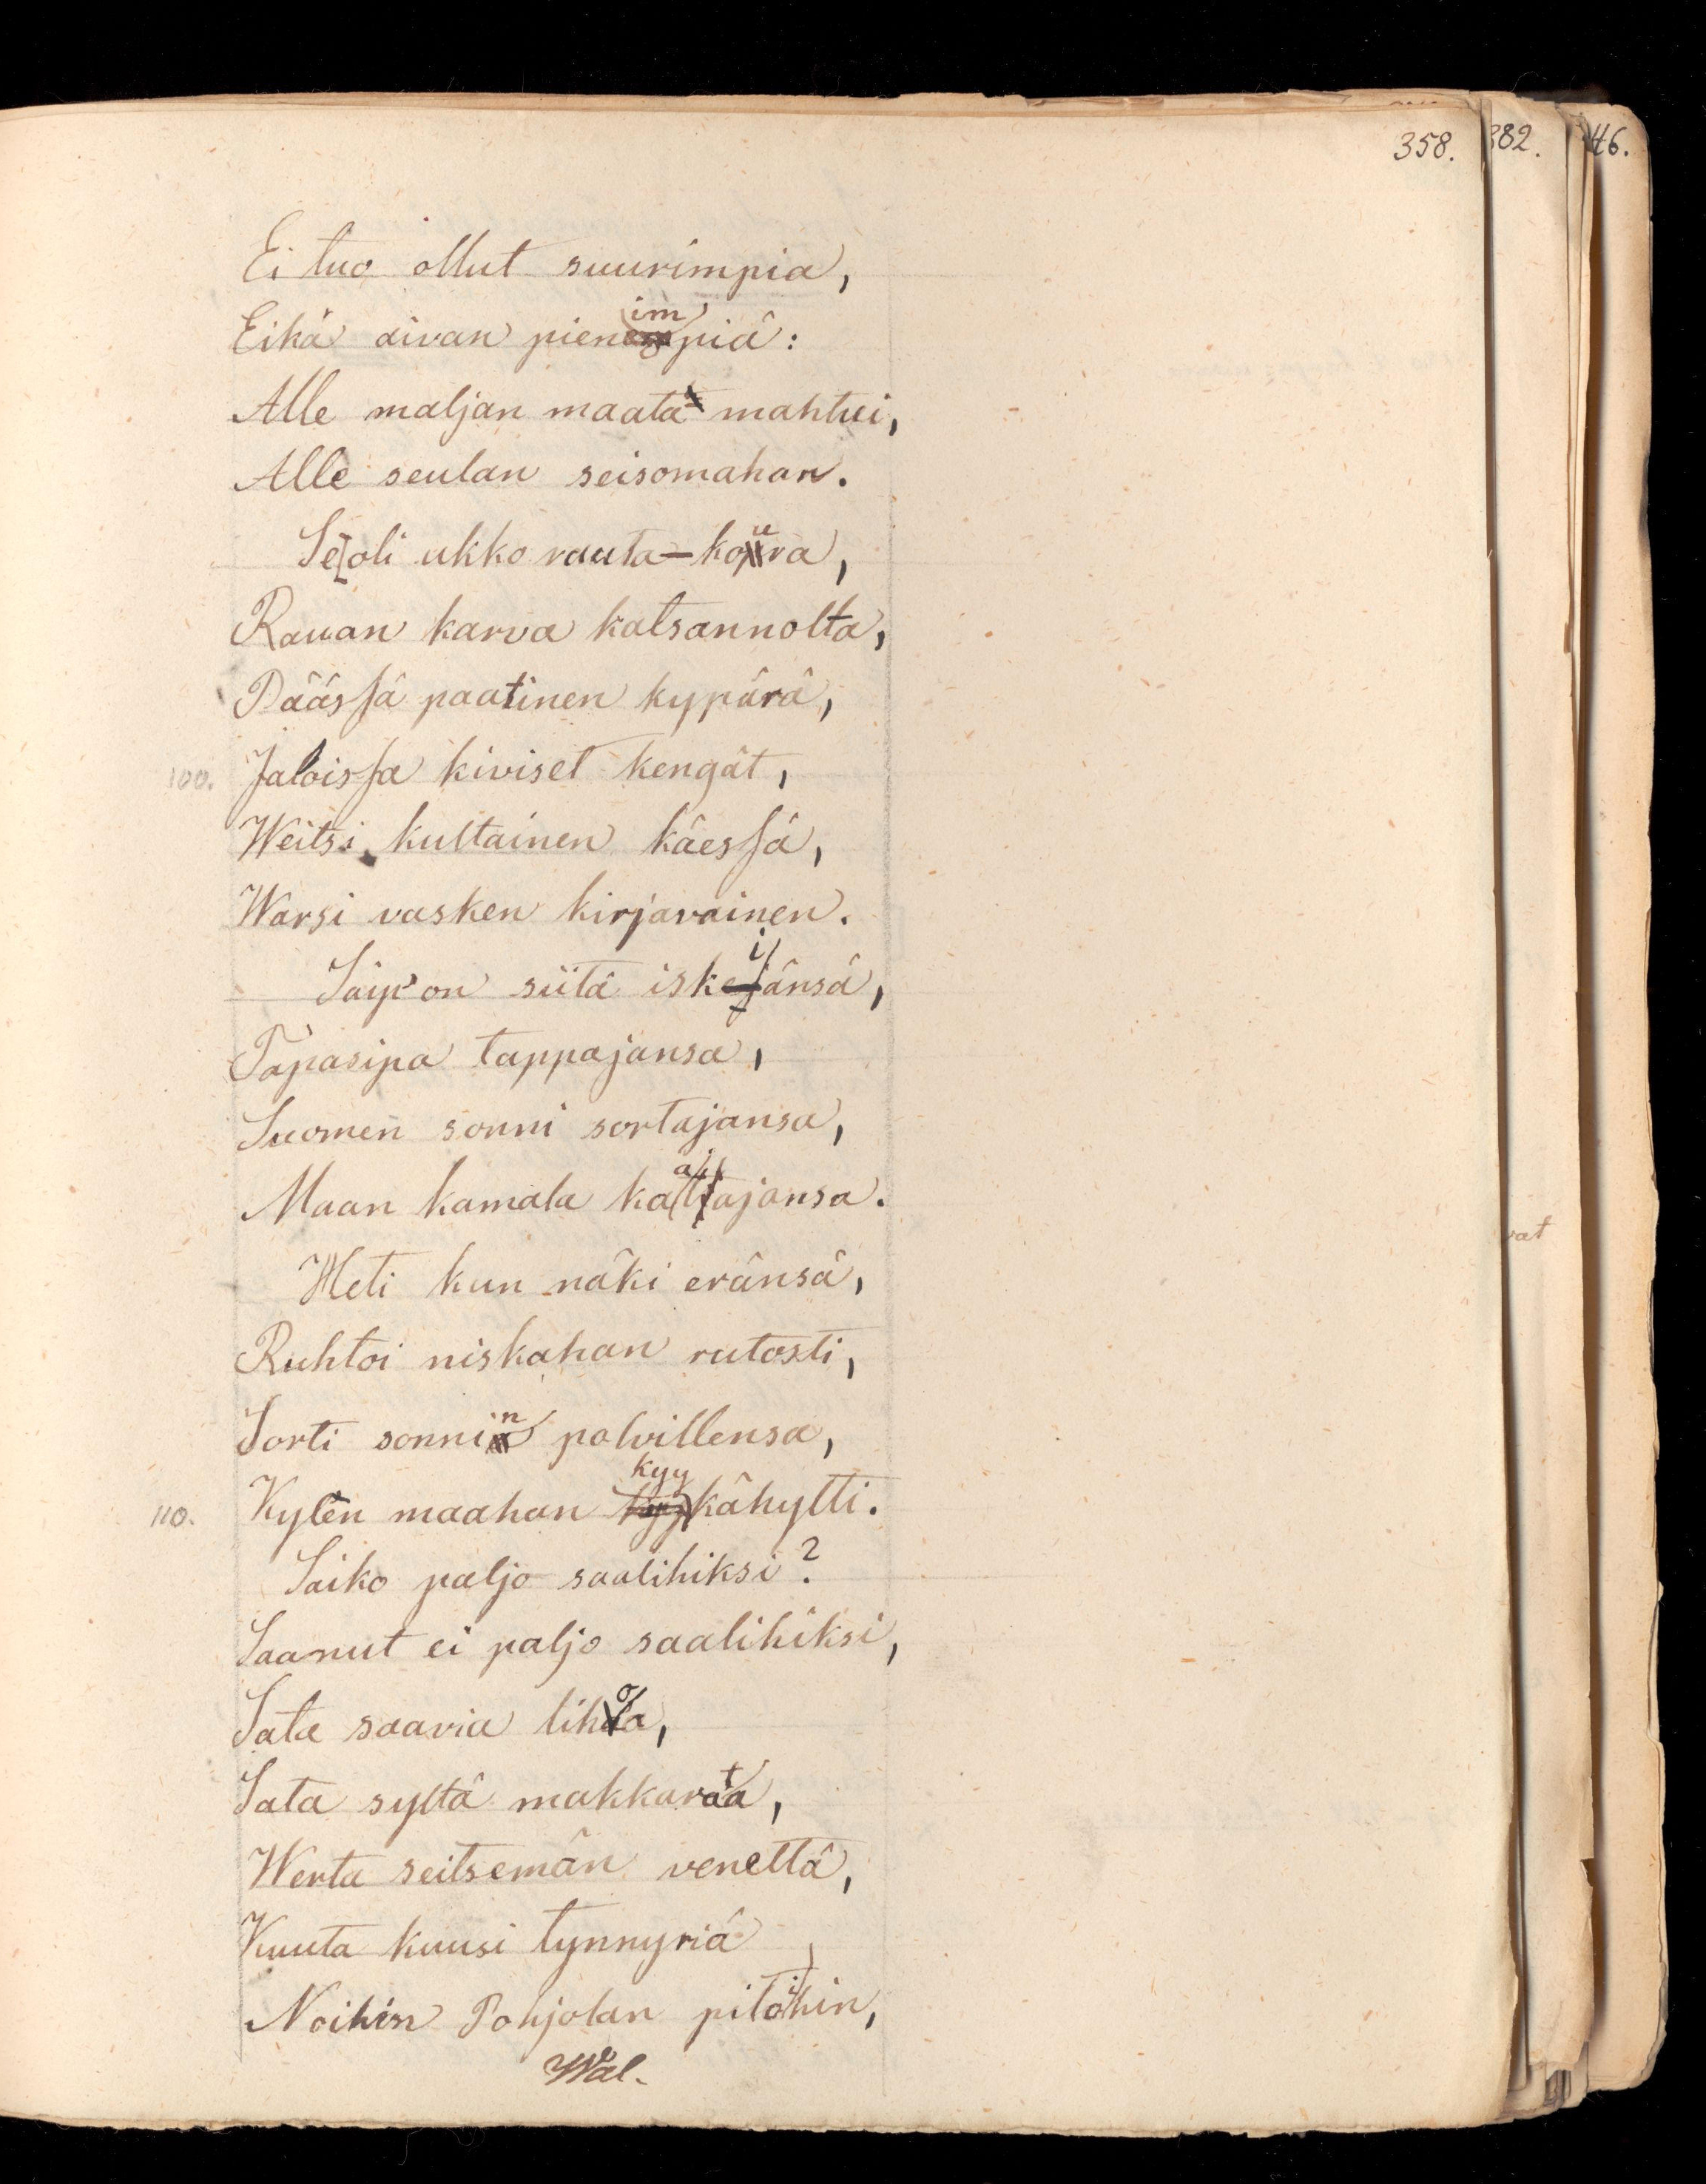 358.
382.
46.
Ei tuo ollut suurimpia,
Eikä aivan pienimpiä:
Alle maljan maata mahtui,
Alle seulan seisomahan.
Se oli ukko rauta-koura,
Rauan karva katsannolta,
Päässä paatinen kypärä,
100. Jaloissa kiviset kengät,
Weitsi kultainen käessä,
Warsi vasken kirjavainen.
Saip' on siitä iskiänsä,
Tapasipa tappajansa,
Suomen sonni sortajansa,
Maan kamala kaatajansa.
Heti kun näki eränsä,
Ruhtoi niskahan rutosti,
Sorti sonnin polvillensa,
110. Kylen maahan kyykähytti.
Saiko paljo saalihiksi?
Saanut ei paljo saalihiksi,
Sata saavia lihoa,
Sata syltä makkarata,
Werta seitsemän venettä,
Kuuta kuusi tynnyriä
Noihin Pohjolan pitoihin,
Wal.
vat